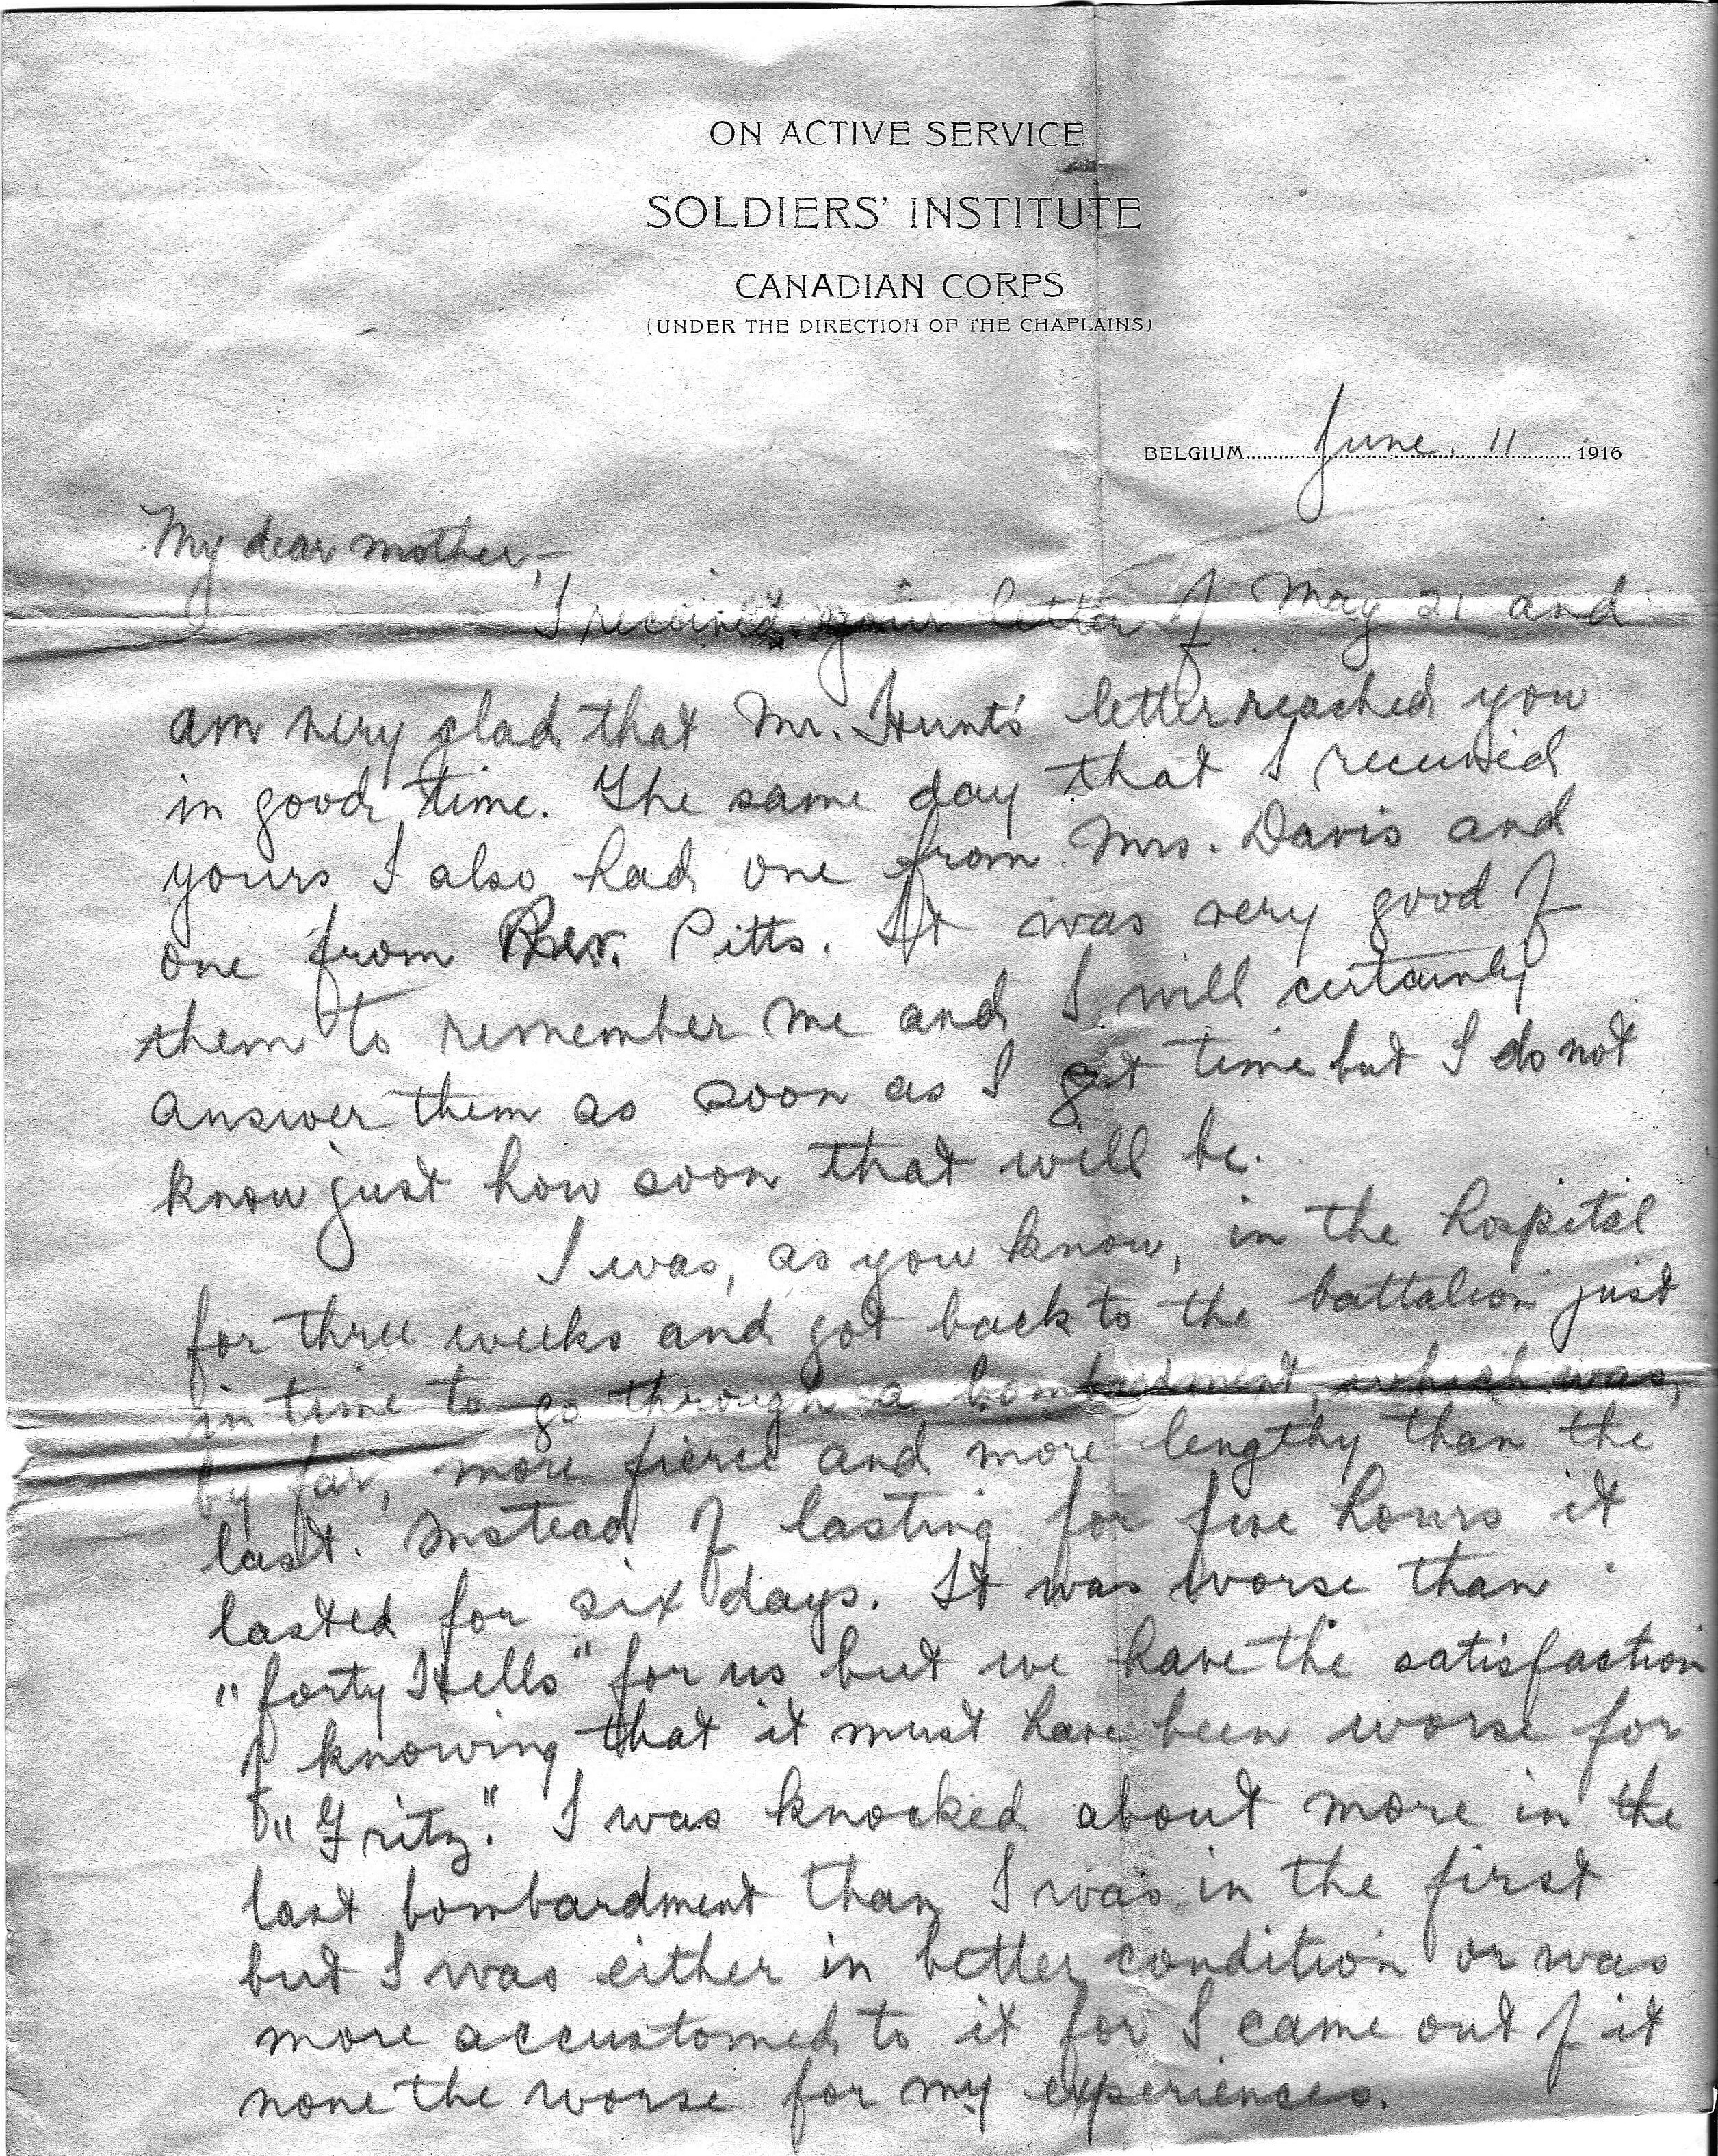 ON ACTIVE SERVICE
SOLDIERS' INSTITUTE
CANADIAN CORPS
(UNDER THE DIRECTION OF THE CHAPLAINS)
BELGIUM........June. 11........1916
My dear mother,-
I received your letter of May 21 and
am very glad that Mr. Hunt's letter reached you
in good time. The same day that I received
yours I also had one from Mrs. Davis and
one from Rev. Pitts. It was very good of
them to remember me and I will certainly
answer them as soon as I get time but I do not
know just how soon that will be.
I was, as you know, in the hospital
for three weeks and got back to the battalion just
in time to go through a bombardment, which was,
by far, more fierce and more lengthy than the
last. Instead of lasting for five hours it
lasted for six days. It was worse than
"forty Hells" for us but we have the satisfaction
of knowing that it must have been worse for
"Fritz". I was knocked about more in the
last bombardment than I was in the first
but I was either in better condition or was
more accustomed to it for I came out of it
none the worse for my experiences.